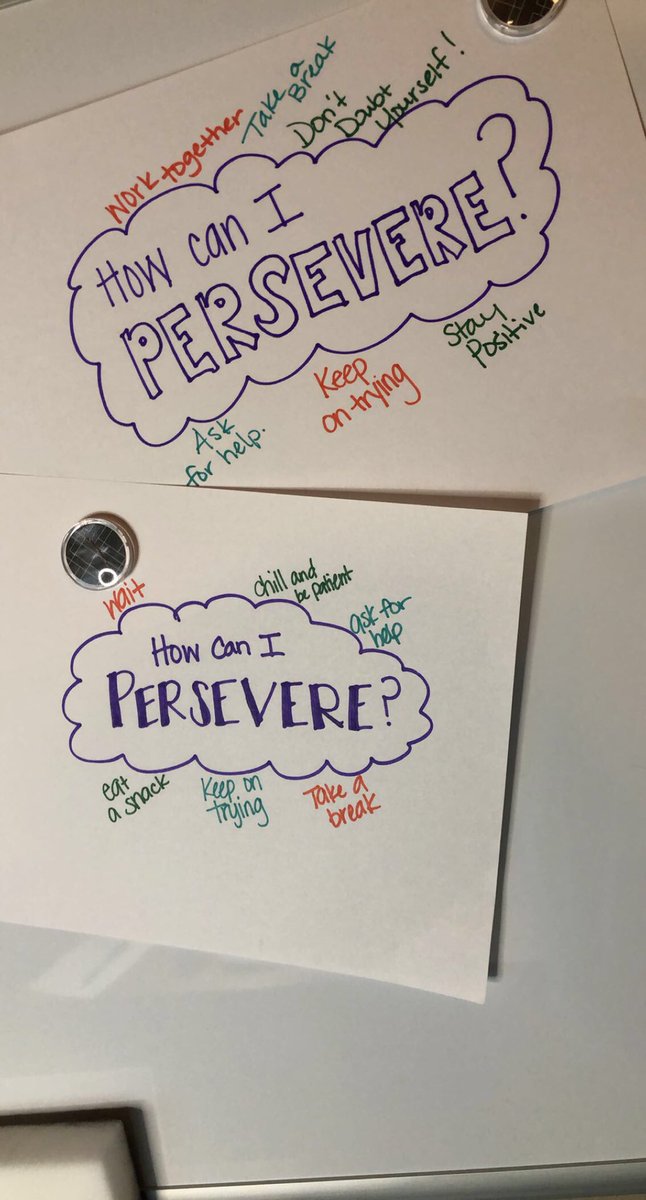 Work together
Take a
Break
Don't
Doubt
Yourself!
How can I
PERSEVERE?
Ask
for help.
Keep
on trying
Stay
Positive
wait
chill and
be patient
ask for
help
How can I
PERSEVERE?
eat
a snack
Keep on
trying
Take a
break